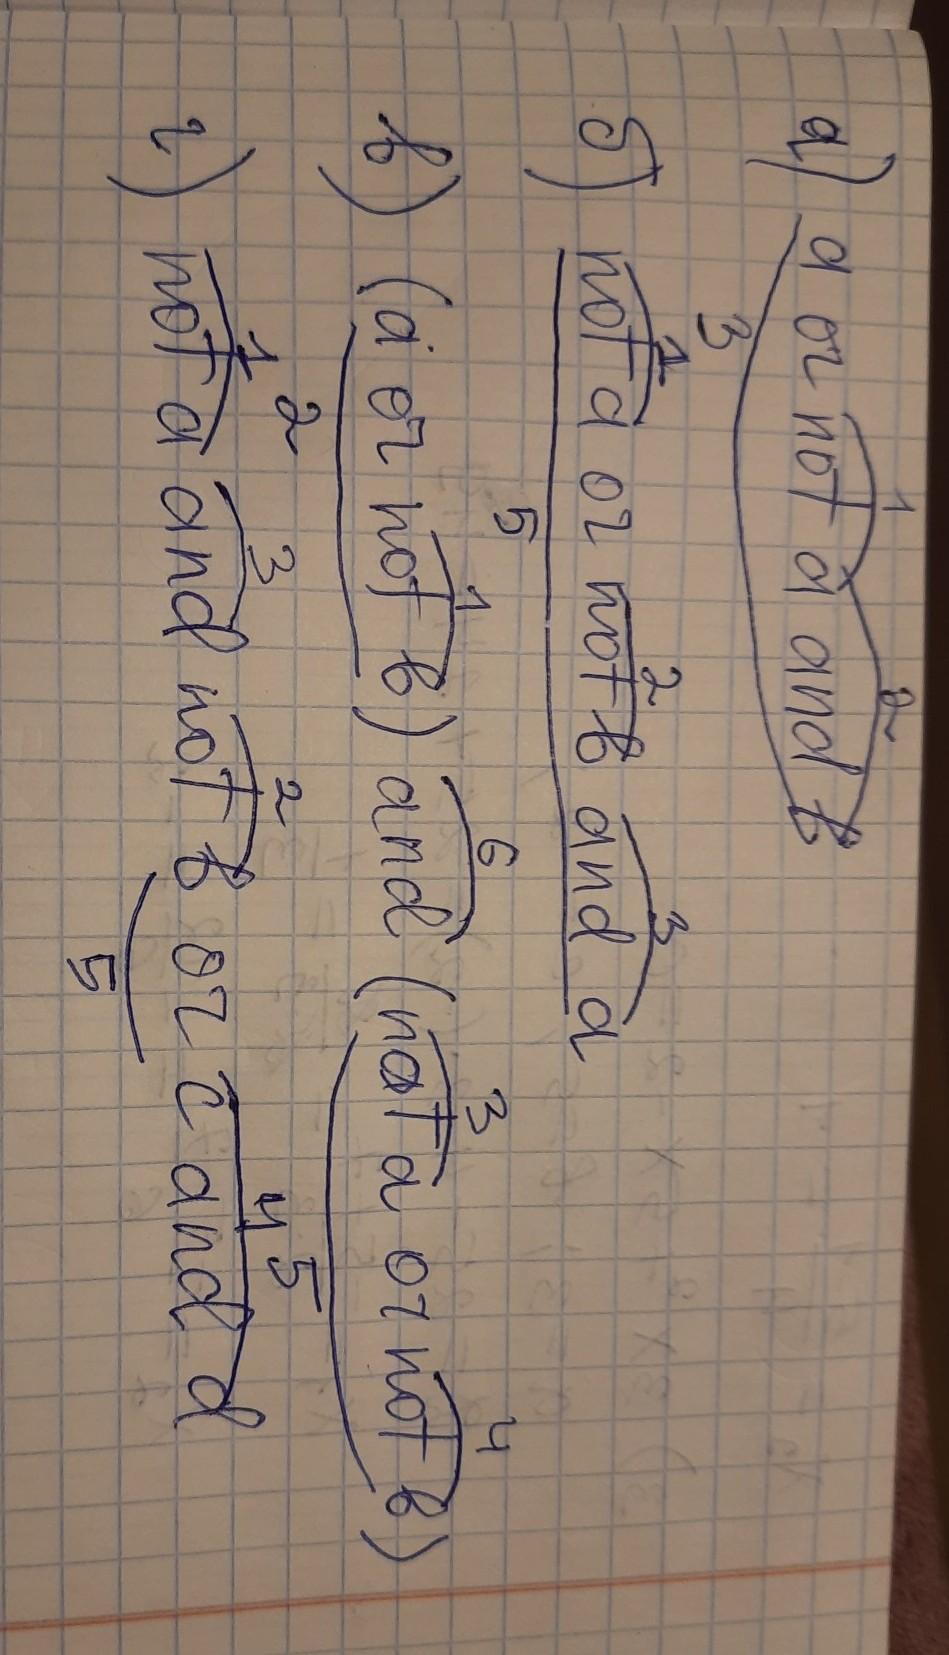 1 2
а) a or not a and b
3
1 2 3
б) not a or not b and a
5
1 6 3 4
в) (a or not b) and (not a or not b)
2 5
1 3 2 4
г) not a and not b or c and d
5